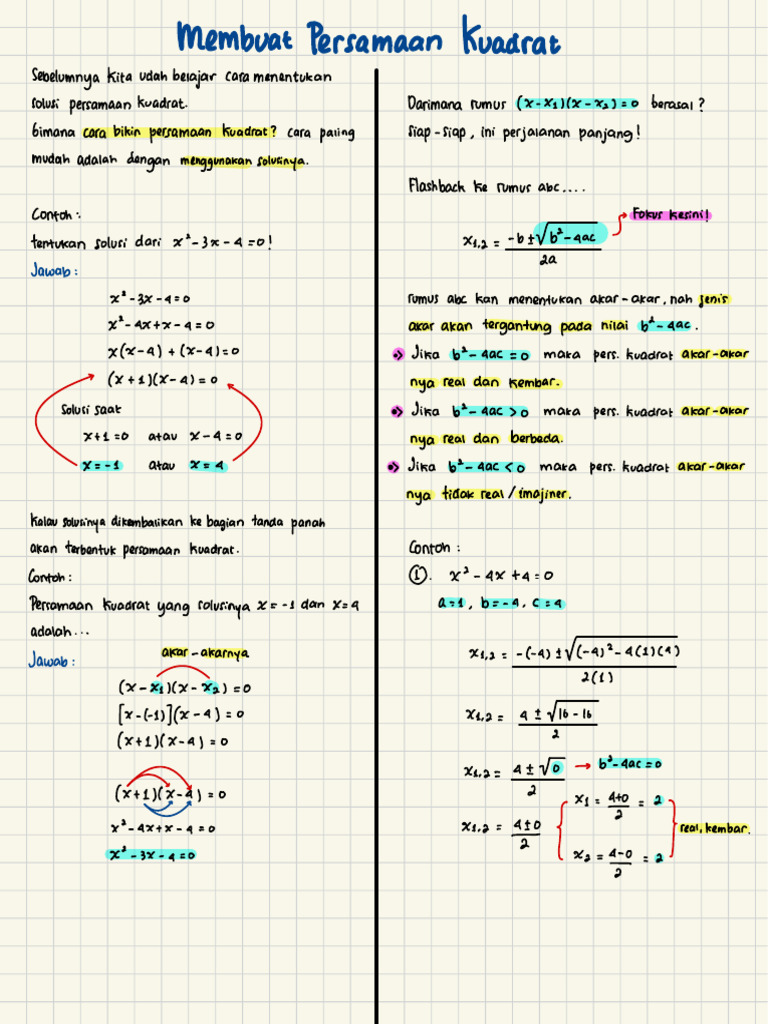 Membuat Persamaan Kuadrat
Sebelumnya kita udah belajar cara menentukan
solusi persamaan kuadrat.
Gimana cara bikin persamaan kuadrat? cara paling
mudah adalah dengan menggunakan solusinya.
Contoh :
tentukan solusi dari x² - 3x - 4 = 0!
Jawab :
x² - 3x - 4 = 0
x² - 4x + x - 4 = 0
x(x-4) + (x-4) = 0
(x+1)(x-4) = 0
Solusi saat
x+1 = 0 atau x-4 = 0
x = -1 atau x = 4
Kalau solusinya dikembalikan ke bagian tanda panah
akan terbentuk persamaan kuadrat.
Contoh :
Persamaan kuadrat yang solusinya x = -1 dan x = 4
adalah...
Jawab :
akar-akarnya
(x - x₁)(x - x₂) = 0
[x-(-1)](x-4) = 0
(x+1)(x-4) = 0
(x+1)(x-4) = 0
x² - 4x + x - 4 = 0
x² - 3x - 4 = 0
Darimana rumus (x-x₁)(x-x₂) = 0 berasal?
Siap-siap, ini perjalanan panjang!
Flashback ke rumus abc....
Fokus kesini!
x₁,₂ = (-b ± √(b² - 4ac)) / 2a
rumus abc kan menentukan akar-akar, nah jenis
akar akan tergantung pada nilai b² - 4ac.
Jika b² - 4ac = 0 maka pers. kuadrat akar-akar
nya real dan kembar.
Jika b² - 4ac > 0 maka pers. kuadrat akar-akar
nya real dan berbeda.
Jika b² - 4ac < 0 maka pers. kuadrat akar-akar
nya tidak real / imajiner.
Contoh :
①. x² - 4x + 4 = 0
a = 1, b = -4, c = 4
x₁,₂ = (-(-4) ± √((-4)² - 4(1)(4))) / 2(1)
x₁,₂ = (4 ± √(16 - 16)) / 2
x₁,₂ = (4 ± √0) / 2 → b² - 4ac = 0
x₁,₂ = (4 ± 0) / 2
x₁ = (4+0) / 2 = 2
x₂ = (4-0) / 2 = 2
real, kembar.